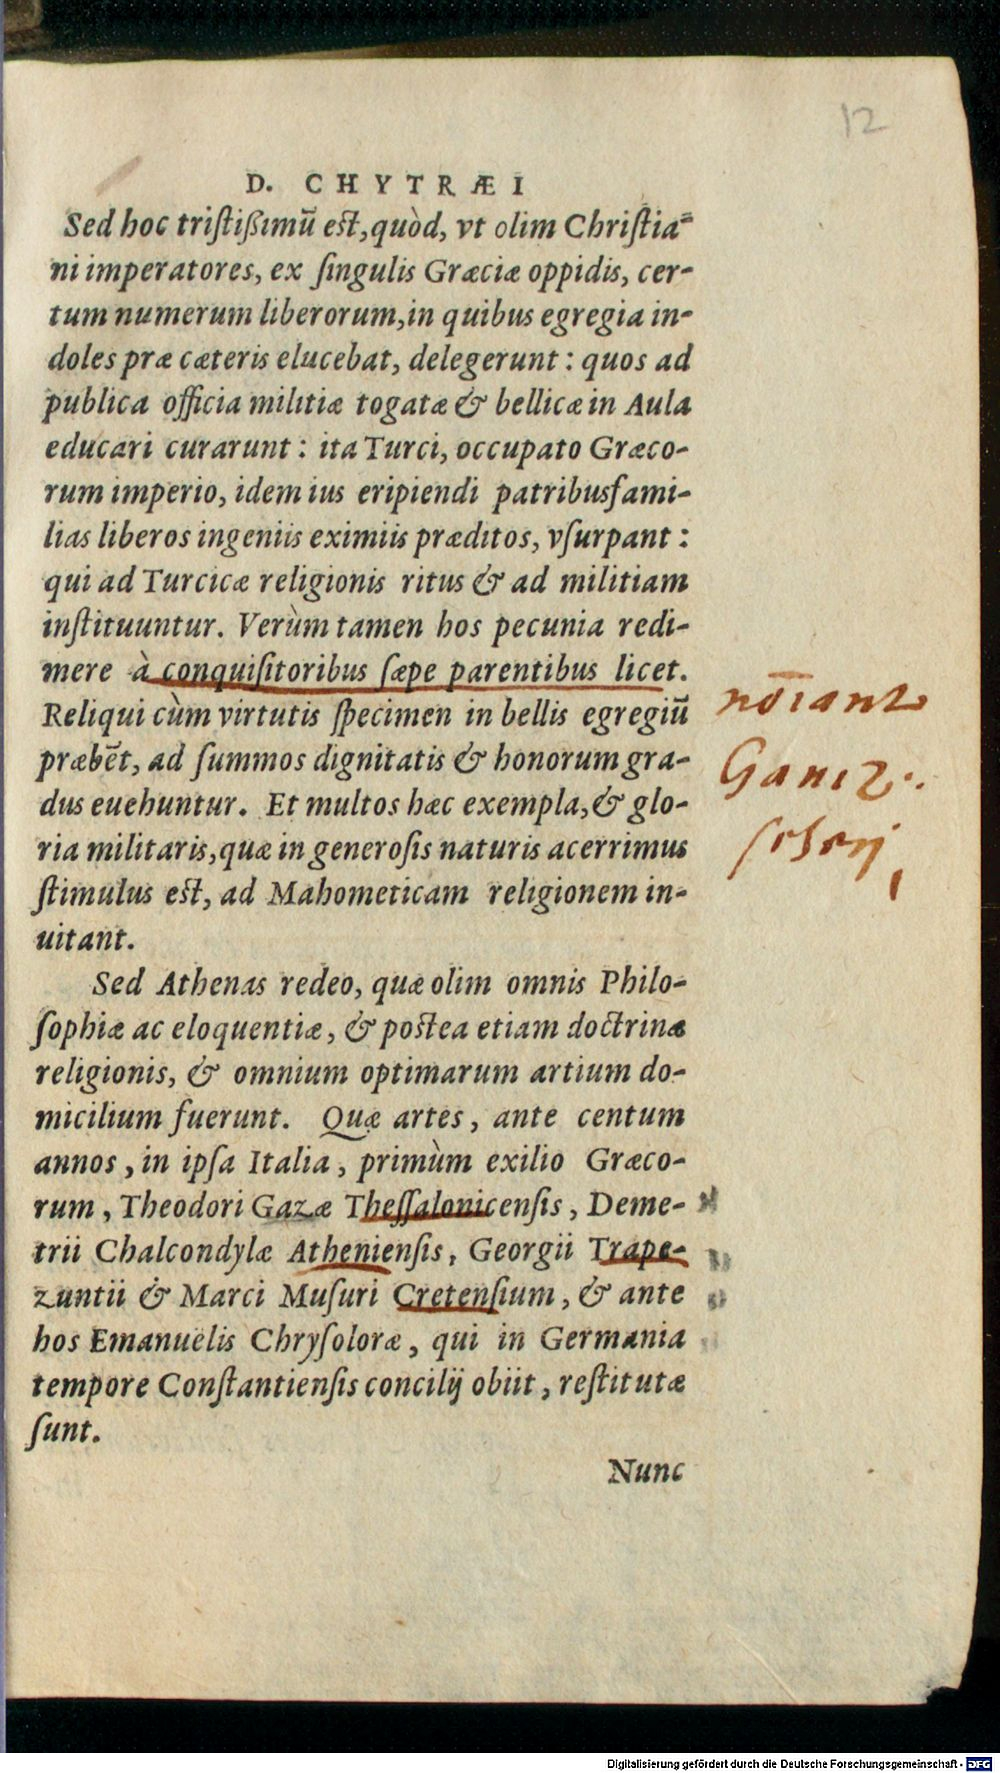 12
D. CHYTRÆI
Sed hoc tristißimũ est, quòd, vt olim Christia-
ni imperatores, ex singulis Græciæ oppidis, cer-
tum numerum liberorum, in quibus egregia in-
doles præ cæteris elucebat, delegerunt: quos ad
publica officia militiæ togatæ & bellicæ in Aula
educari curarunt: ita Turci, occupato Græco-
rum imperio, idem ius eripiendi patribusfami-
lias liberos ingeniis eximiis præditos, vsurpant:
qui ad Turcicæ religionis ritus & ad militiam
instituuntur. Verùm tamen hos pecunia redi-
mere à conquisitoribus sæpe parentibus licet.
Reliqui cùm virtutis specimen in bellis egregiũ
præbẽt, ad summos dignitatis & honorum gra-
dus euehuntur. Et multos hæc exempla, & glo-
ria militaris, quæ in generosis naturis acerrimus
stimulus est, ad Mahometicam religionem in-
uitant.
nōiant
Ganiz.
Sed Athenas redeo, quæ olim omnis Philo-
sophiæ ac eloquentiæ, & postea etiam doctrinæ
religionis, & omnium optimarum artium do-
micilium fuerunt. Quæ artes, ante centum
annos, in ipsa Italia, primùm exilio Græco-
rum, Theodori Gazæ Thessalonicensis, Deme-
trii Chalcondylæ Atheniensis, Georgii Trape-
zuntii & Marci Musuri Cretensium, & ante
hos Emanuelis Chrysoloræ, qui in Germania
tempore Constantiensis concilij obiit, restitutæ
sunt.
Nunc
Digitalisierung gefördert durch die Deutsche Forschungsgemeinschaft - DFG